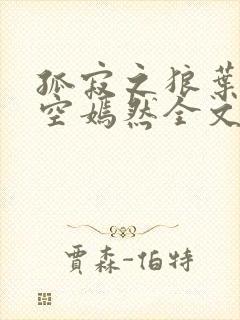 孤寂之狼葉
空嫣然全文
賈森-伯特